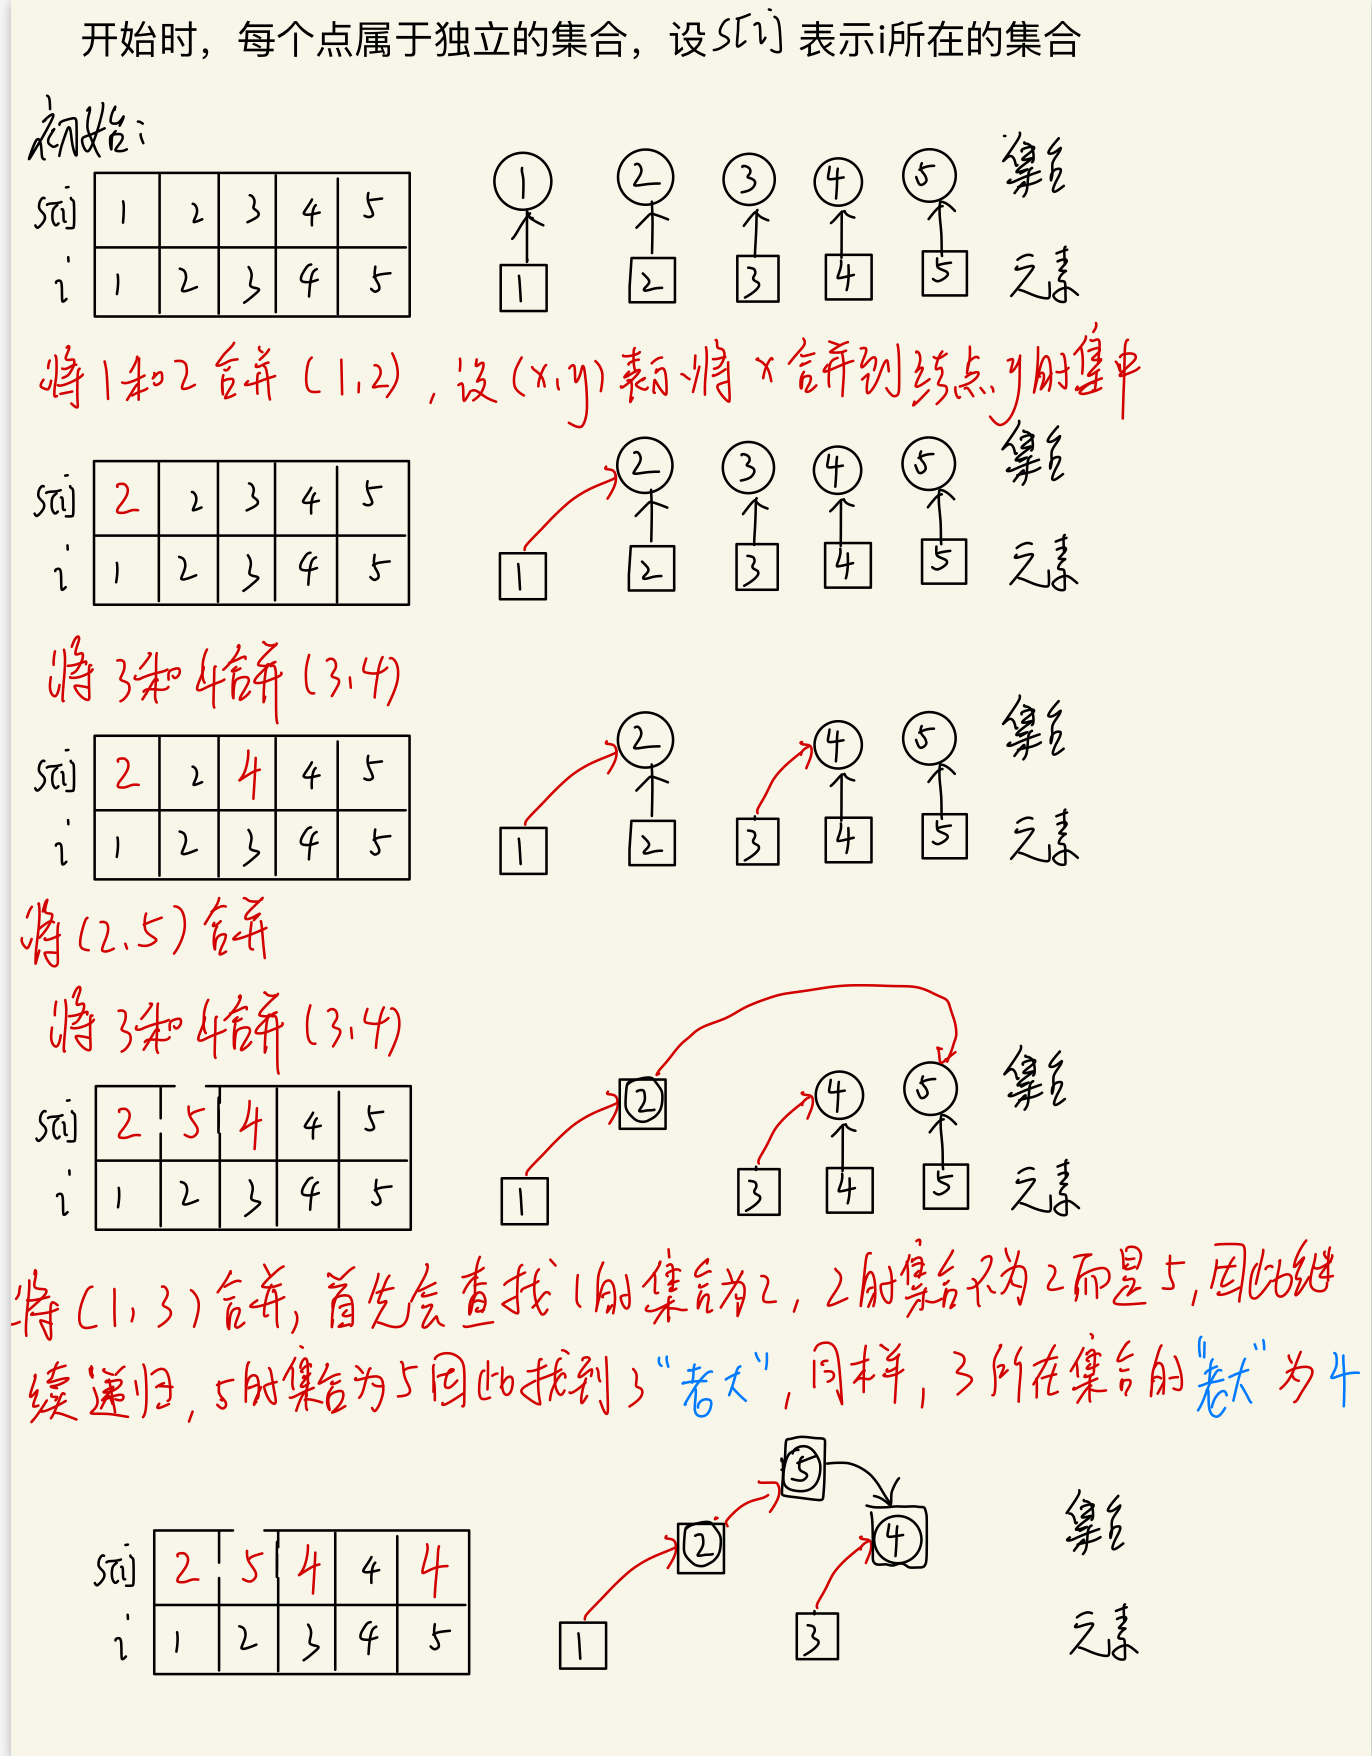 开始时，每个点属于独立的集合，设s[i]表示i所在的集合
初始:
s[i] 1 2 3 4 5
i 1 2 3 4 5
1 2 3 4 5 集合
1 2 3 4 5 元素
将1和2合并(1,2),设(x,y)表示将x合并到结点y的集中
s[i] 2 2 3 4 5
i 1 2 3 4 5
2 3 4 5 集合
1 2 3 4 5 元素
将3和4合并(3,4)
s[i] 2 2 4 4 5
i 1 2 3 4 5
2 4 5 集合
1 2 3 4 5 元素
将(2,5)合并
将3和4合并(3,4)
s[i] 2 5 4 4 5
i 1 2 3 4 5
2 4 5 集合
1 3 4 5 元素
将(1,3)合并,首先会查找1的集合为2,2的集合不为2而是5,因此继
续递归,5的集合为5因此找到了"老大",同样,3所在集合的"老大"为4
s[i] 2 5 4 4 4
i 1 2 3 4 5
5
2 4 集合
1 3 元素